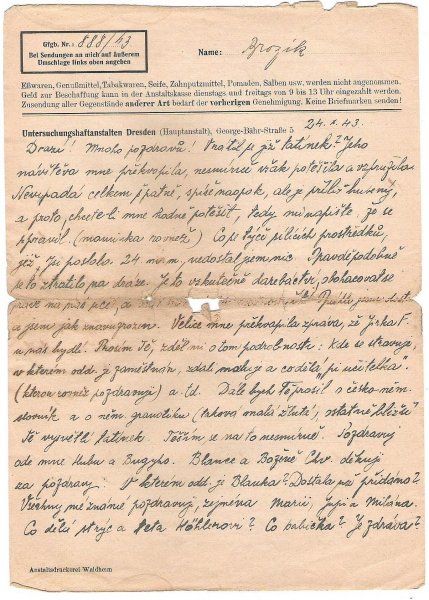 Gfgb. Nr.: 888/43
Bei Sendungen an mich auf äußerem
Umschlage links oben angeben
Name: Brozik
Eßwaren, Genußmittel, Tabakwaren, Seife, Zahnputzmittel, Pomaden, Salben usw. werden nicht angenommen.
Geld zur Beschaffung kann in der Anstaltskasse dienstags und freitags von 9 bis 13 Uhr eingezahlt werden.
Zusendung aller Gegenstände anderer Art bedarf der vorherigen Genehmigung. Keine Briefmarken senden!
24. X. 43.
Untersuchungshaftanstalten Dresden (Hauptanstalt), George-Bähr-Straße 5
Drazí! Mnoho pozdravů! Vrátil se již tatínek? Jeho
návštěva mne překvapila, nesmírně však potěšila a vzpružila.
Nevypadá celkem špatně, spíše naopak, ale je příliš hubený,
a proto, chcete-li mne hodně potěšit, tedy mi napište, že se
spravil (maminka rovněž). Co se týče šicích prostředků,
jež jsi poslala 24 m.m, nedostal jsem nic. Pravděpodobně
se to ztratilo na dráze. Je to vskutečně darebáctví, obohacovat se
a jsem jak znovuzrozen. Velice mne překvapila zpráva, že Jirka F.
u nás bydlí. Prosím Tě, sděl mi o tom podrobnosti: Kde se stravuje,
v kterém odd. je zaměstnán, zdali maluje a co dělá „pí učitelka".
(kterou rovněž pozdravuji) a.t.d. Dále bych Tě prosil o česko-něm.
slovník a o něm. gramatiku (taková malá žlutá, ostatně blíže
Tě vysvětlí tatínek. Těším se na to nesmírně. Pozdravuj
ode mne Kubu a Bugyho. Blance a Boženě Chv. děkuji
za pozdravy. V kterém odd. je Blanka? Dostala již přidáno?
Všechny mé známé pozdravuj, zejména Marii, Jupi a Milána.
Co dělá strýc a teta Höhlenovi? Co babička? Je zdráva?
Anstaltsdruckerei Waldheim